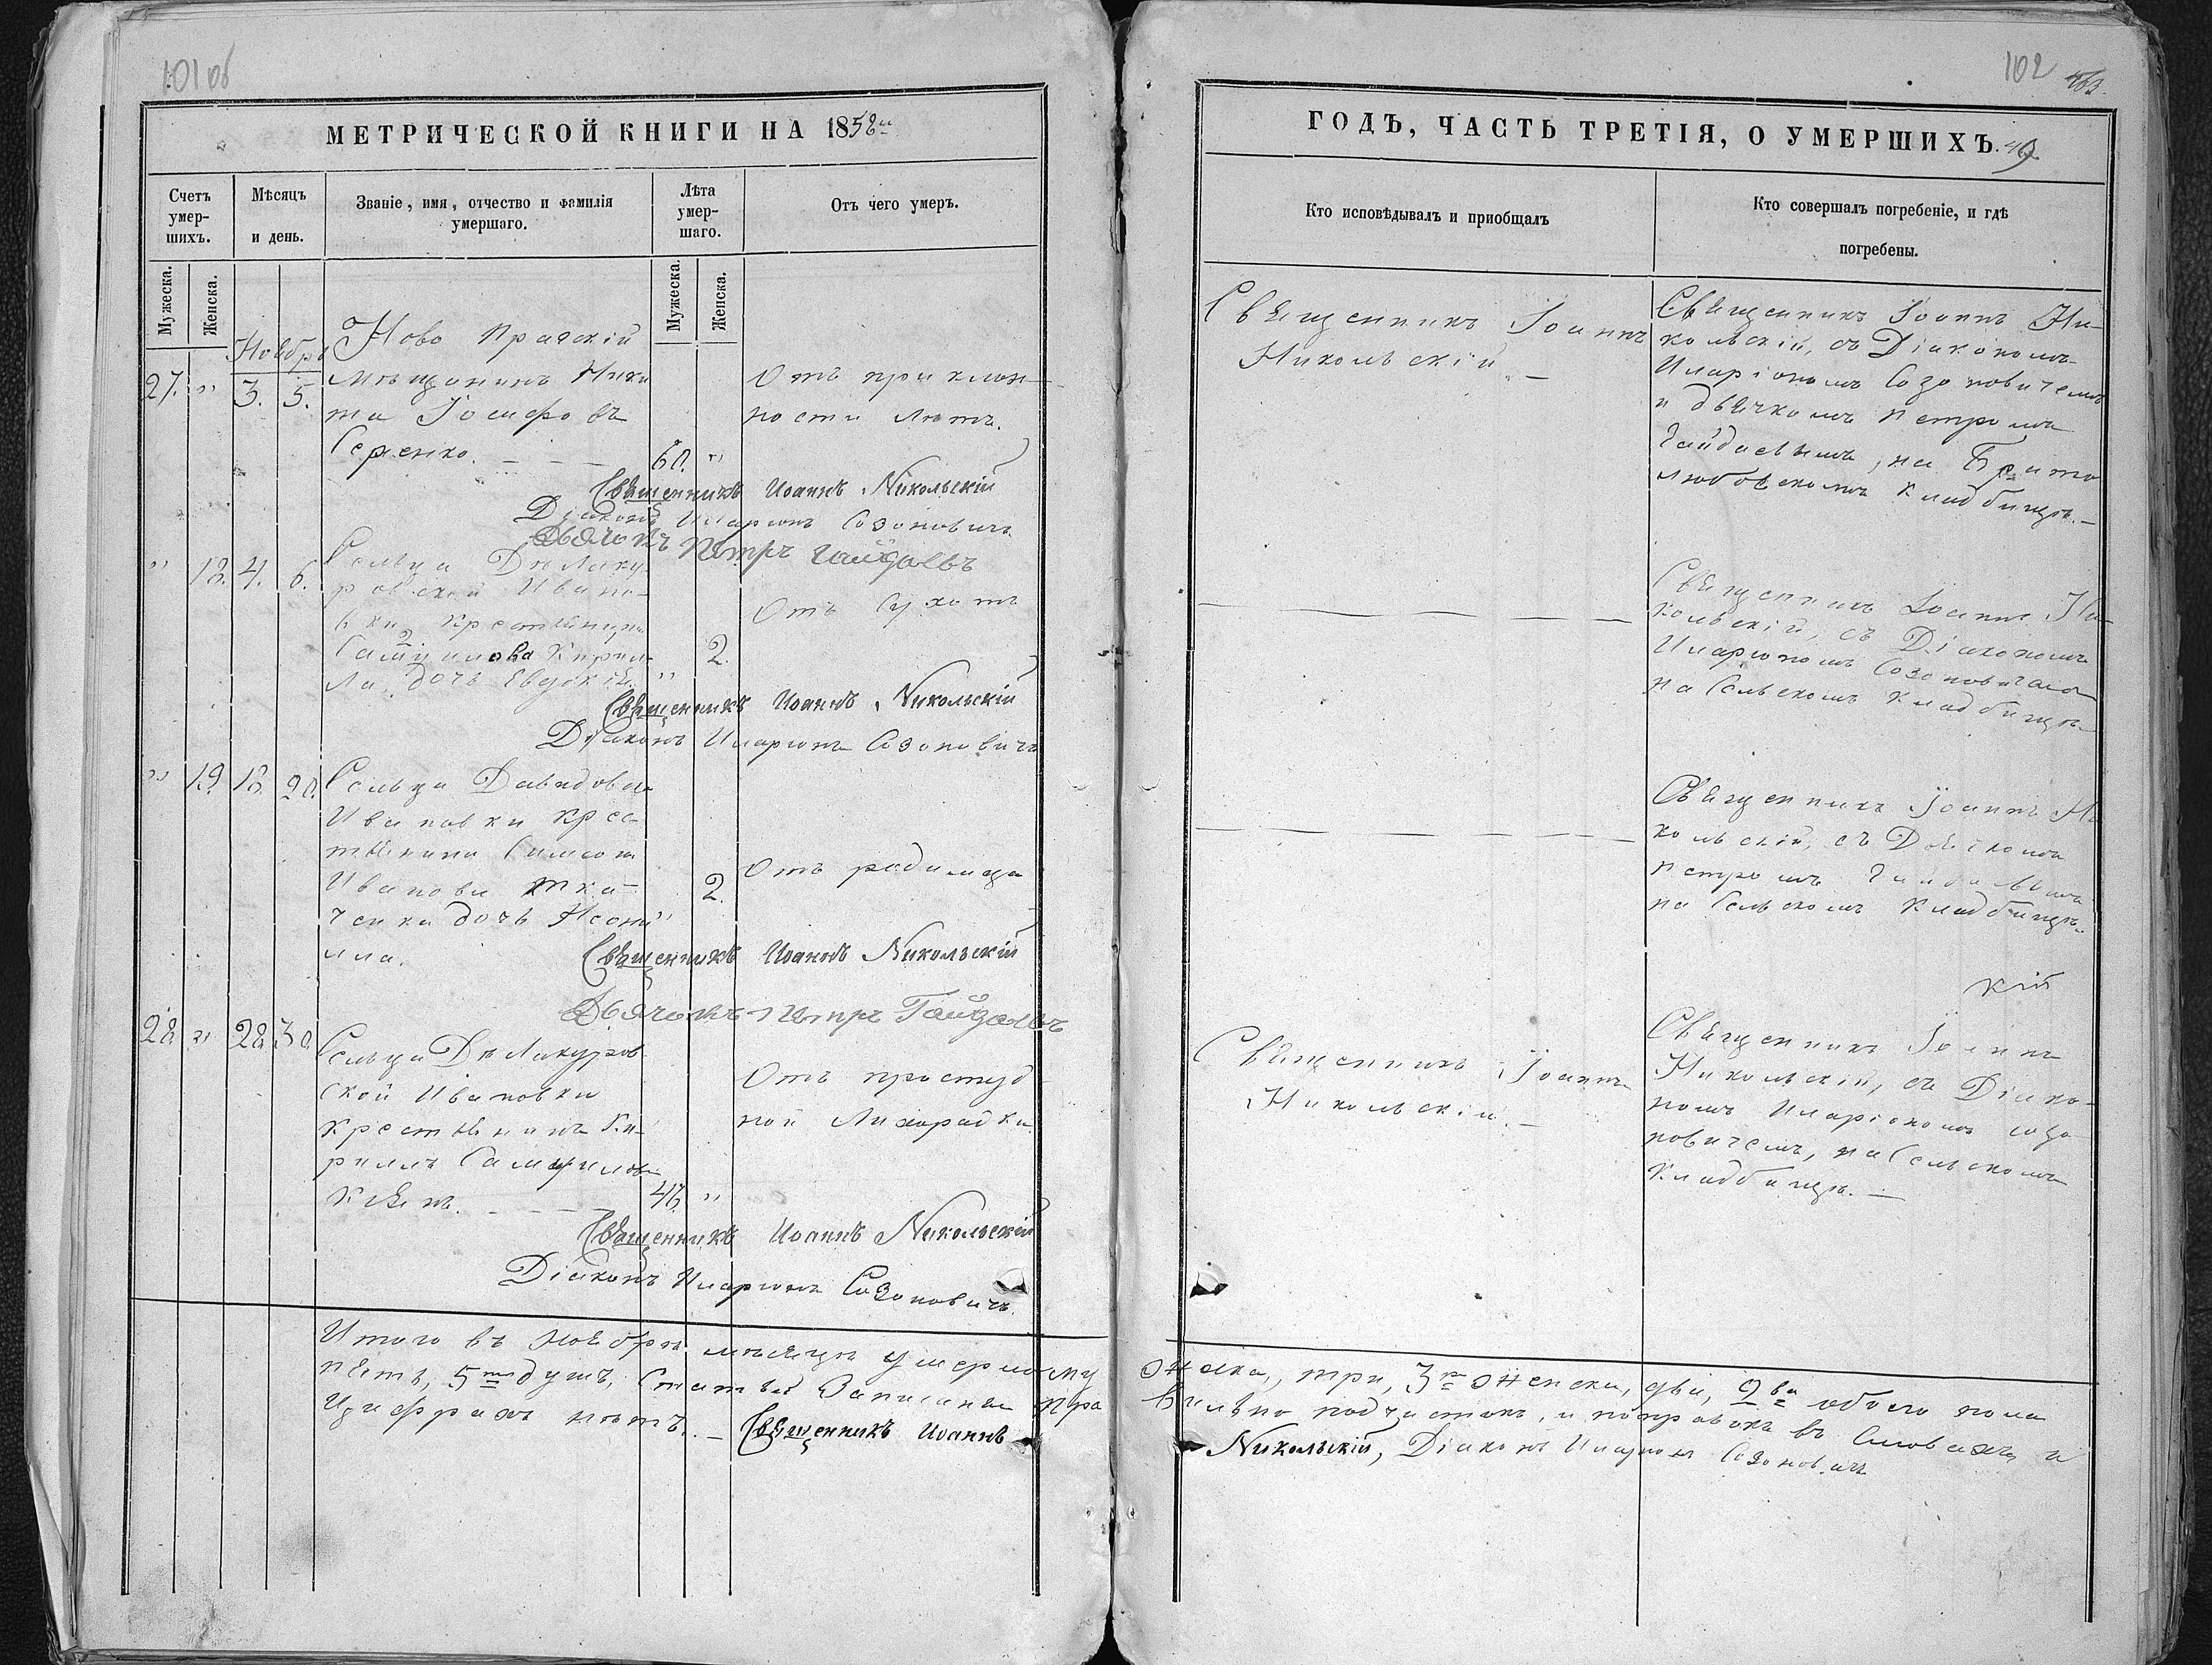 101 об
МЕТРИЧЕСКОЙ КНИГИ НА 1858й
Счетъ умер-шихъ.
Мѣсяцъ и день.
Званіе, имя, отчество и фамилія умершаго.
Лѣта умер-шаго.
Отъ чего умеръ.
Мужеска.
Женска.
Мужеска.
Женска.
Ноябрь
27. " 3. 5.
Ново Прагскій
мѣщанинъ Ники
та Іосифовъ
Серенко. — — — 60. "
Отъ приклон-
ности лѣтъ.
Священникъ Иоаннъ Никольскій
Діаконъ Иларіонъ Созоновичъ
Дьячокъ Петръ Гайдаевъ
" 18. 4. 6.
Сельца
ровской Ивано-
вки крестьянина
Самуилова Кирил-
ла, дочь Евдокія. " 2.
Отъ Сухотъ
Священникъ Иоаннъ Никольскій
Діаконъ Иларіонъ Созоновичъ
" 19. 18. 20.
Сельца Давидовой
Ивановки крес-
тьянина Симеона
Иванова Тка-
ченка дочь
" 2.
Отъ родимца
Священникъ Иоаннъ Никольскій
Дьячокъ Петръ Гайдаевъ
28. " 28. 30.
Сельца Де Лакуров
ской Ивановки
крестьянинъ Ки-
риллъ Самуиловъ
— — — 46. "
Отъ простуд
ной Лихорадки
Священникъ Иоаннъ Никольскій
Діаконъ Иларіонъ Созоновичъ.
Итого въ Ноябрѣ мѣсяцѣ умерло му
пять, 5ть душъ, Статьи Записаны пра
Цифрахъ нѣтъ. — Священникъ Иоаннъ
102
ГОДЪ, ЧАСТЬ ТРЕТІЯ, О УМЕРШИХЪ. 49
Кто исповѣдывалъ и приобщалъ
Кто совершалъ погребеніе, и гдѣ погребены.
Священникъ Іоаннъ
Никольскій. —
Священникъ Іоаннъ Ни-
кольскій, съ Діакономъ
Иларіономъ Созоновичемъ
и дьячкомъ Петромъ
Гайдаевымъ, на Брато
любовскомъ кладбищѣ. —
Священникъ Іоаннъ Ни-
кольскій, съ Діакономъ
Иларіономъ Созоновичемъ
на Сельскомъ Кладбищѣ
Священникъ Іоаннъ Ни
кольскій, съ Дьячкомъ
Петромъ Гайдаевымъ
на Сельскомъ Кладбищѣ
кій
Священникъ Іоаннъ
Никольскій. —
Священникъ Іоаннъ
Никольскій, съ Діако-
номъ Иларіономъ Созо
новичемъ, на Сельскомъ
Кладбищѣ. —
жеска, три, 3ри женска, два, 2ва обоего пола
вильно подчистокъ, и поправокъ въ Словахъ и
Никольскій, Діаконъ Иларіонъ Созоновичъ